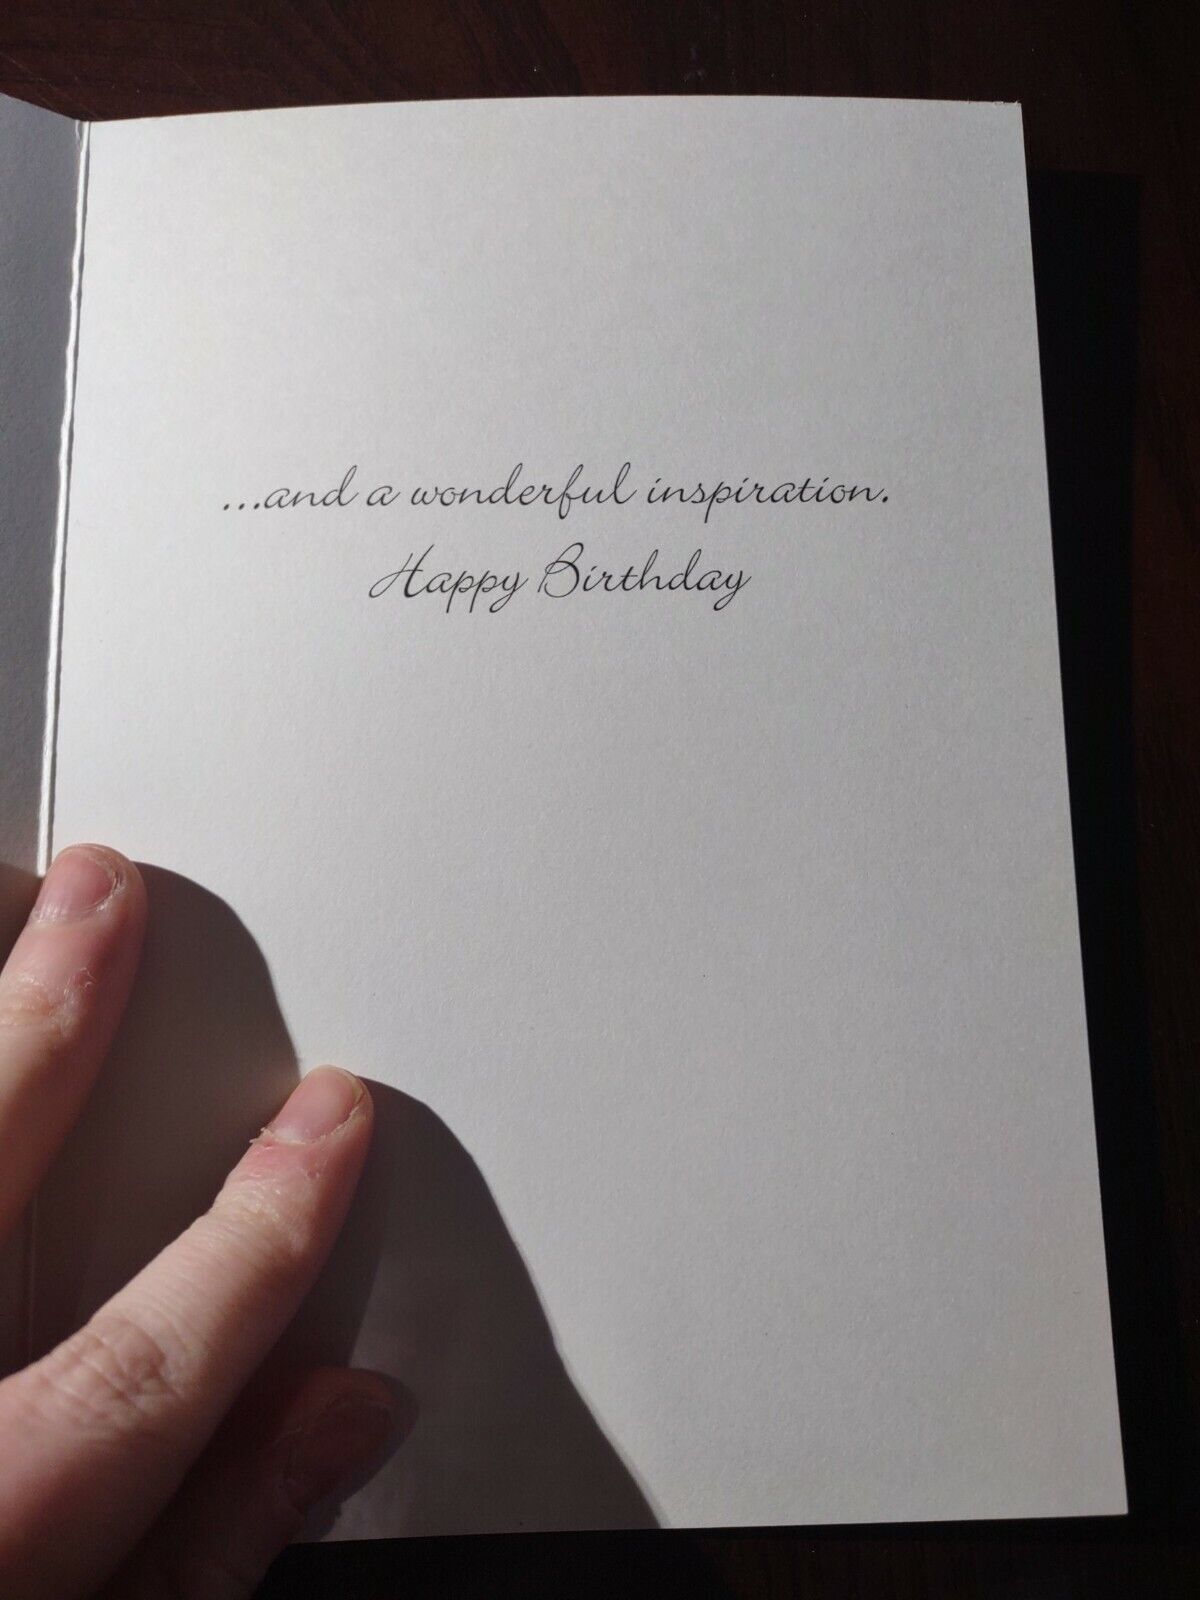 ...and a wonderful inspiration.
Happy Birthday